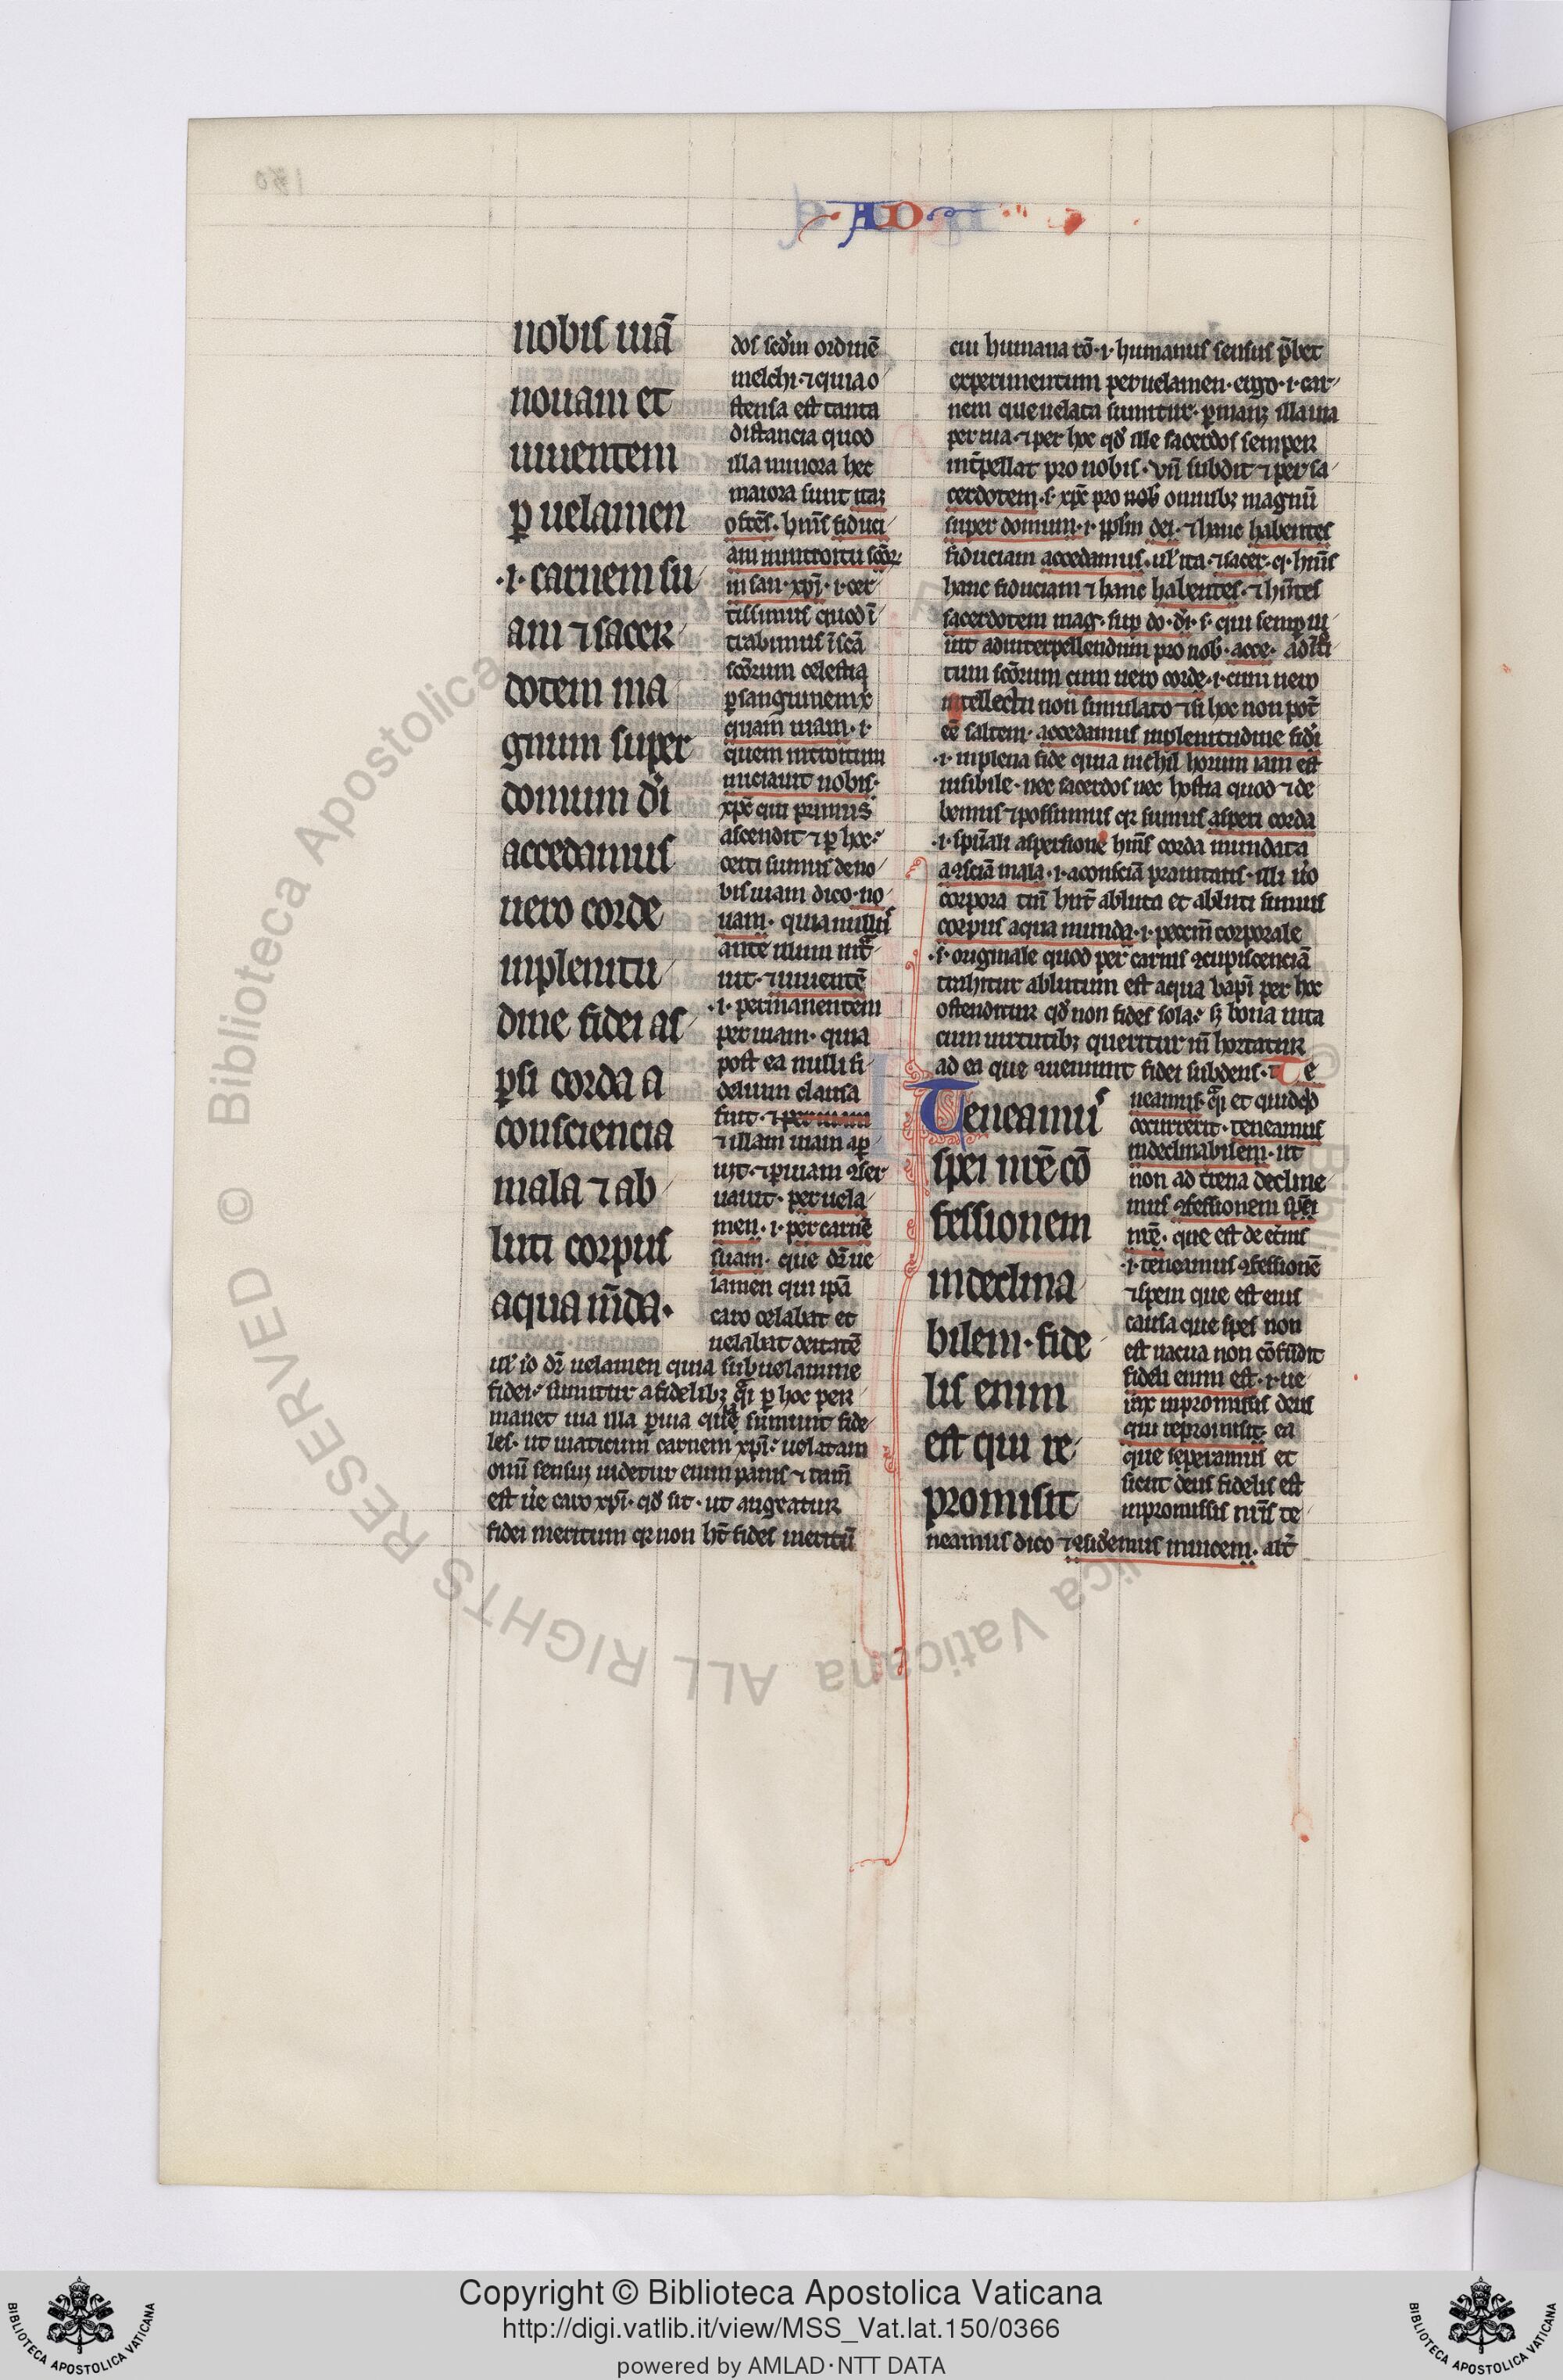 AD
nobis uiā
nouam et
uiuentem
ꝑ uelamen
·i· carnem su
am ⁊ sacer
dotem ma
gnum super
domum dı̄
accedamus
uero corde
in plenitu
dine fidei as
ꝑsi corda a
consciencia
mala ⁊ ab
luti corpus
aqua mūda·
dos scđm ordinē
melchi· ⁊ quia o
stensa est tanta
distancia quod
illa minora hec
maiora sunt itaꝫ
fr̄es· hn̄s fiduci
am in introitu scōꝝ
in san· xp̄i· i· cer
tissimus quod ī
trabimus ī scā
scōrum celestia
ꝑ sanguinem x̄
quam uiam· i·
quem introitum
iniciauit nobis·
xp̄c qui primus
ascendit ⁊ ꝑ hoc
certi sumus de no
bis uiam dico· no
uam· quia nullus
ante illum int̄
uit· ⁊ uiuentē
·i· permanentem
per uiam· quia
post ea nulli fi
delium clausa
fuit· ⁊ per uiam
⁊ illam uiam aꝑ
uit· ⁊ ꝑ uiam ꝯser
uauit· per uela
men· i· per carnē
suam· que dr̄ ue
lamen qui ip̄a
caro celabat et
uelabat deitatē
ul̓ iō dr̄ uelamen quia sub uelamine
fidei sumitur a fidelibꝫ ꝑ hoc per
manet uia illa ꝑuia sumunt fide
les· ut uiaticum carnem xp̄i uelatam
omī sensui uidetur enim panis ⁊ tam̄
est ūe caro xp̄i· qđ fit· ut augeatur
fidei meritum qr non ht̄ fides meritū
cui humana rō· i· humanus sensus p̄bet
experimentum per uelamen· ergo· i· car
nem que uelata sumitur· ꝑmanꝫ illa uia
per uia· ⁊ per hoc qđ ille sacerdos semper
int̄pellat pro nobis· Vn̄ subdit ⁊ per sa
cerdotem· s· xp̄c pro nob̄ omnibꝫ magnū
super domum· i· ip̄sm dei· ⁊ hanc habentes
fiduciam accedamus· ul̓ ita· ⁊ sacer· q· hn̄s
hanc fiduciam ⁊ hanc habentes· ⁊ hn̄tes
sacerdotem mag· suꝑ do· dı̄· s· qui semꝑ ui
uit ad interpellendum pro nob̄· acce·
tum scōrum cum uero corde· i· cum uero
intellectu non simulato ⁊ si hoc non pot̄
eē saltem· accedamus in plenitudine fidı̄
·i· in plena fide quia nichil horum iam est
uisibile· nec sacerdos nec hostia quod ⁊ de
bemus ⁊ possumus qr sumus aspersi corda
·i· spūali aspersione hn̄s corda mundata
a ꝯsciā mala· i· a consciā prauitatis· illi ūo
corpora tm̄ hnt̄ abluta et abluti sumus
corpus aqua munda· i· pecc̄m corporale
·s· originale quod per carnis ꝯcupiscenciā
trahitur ablutum est aqua bap̄i per hoc
ostenditur qđ non fides sola sꝫ bona uita
cum uirtutibꝫ queritur m̄ hortatur
ad ea que ꝯueniunt fidei subdens· Te
Teneamus
spei nr̄e cō
fessionem
indeclina
bilem· fide
lis enim
est qui re
promisit
neamus et quidqđ
occurrerit· teneamus
indeclinabilem· ut
non ad terrena decline
mus ꝯfessionem spei
nr̄e· que est de et̄nis
·i· teneamus ꝯfessionē
⁊ spem que est eius
causa que spes non
est uacua non cōfūdit
fidelis enim est· i· ue
rax in promissis deus
qui repromisit· ea
que speramus et
sicut deus fidelis est
in promissis nr̄is te
neamus dico ⁊ ꝯsidemus inuicem· alt̄
© Biblioteca Apostolica Vaticana ALL RIGHTS RESERVED
Copyright © Biblioteca Apostolica Vaticana
http://digi.vatlib.it/view/MSS_Vat.lat.150/0366
powered by AMLAD·NTT DATA
BIBLIOTECA APOSTOLICA VATICANA
BIBLIOTECA APOSTOLICA VATICANA